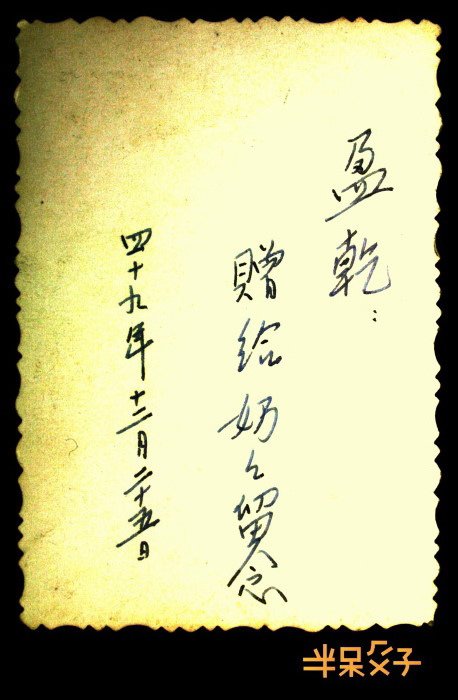 盈乾：
贈給奶々留念
四十九年十二月二十五日
半呆父子